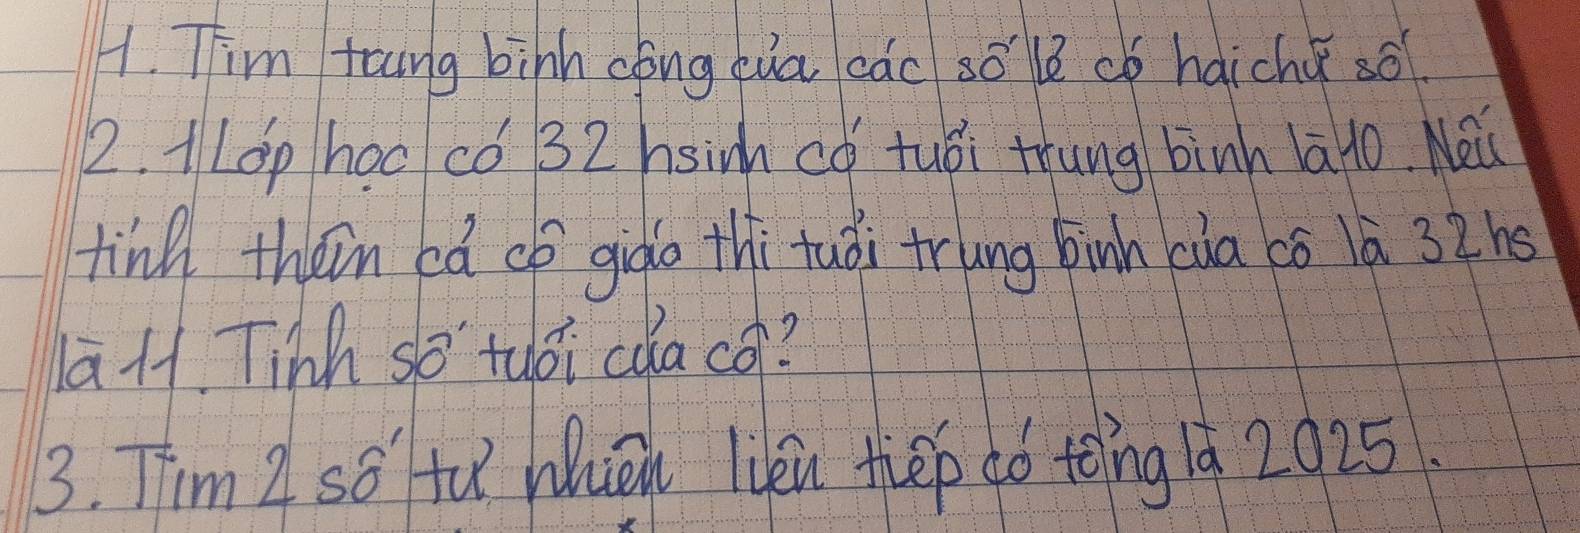 1. Tìm trung bình cộng của các số lẻ có hai chữ số.
2. 1 Lớp học có 32 hsinh có tuổi trung bình là 10. Nếu
tính thêm cả cô giáo thì tuổi trung bình của cô là 32 hs
là 11. Tính số tuổi của cô?
3. Tìm 2 số tự nhiên liên tiếp có tổng là 2025.